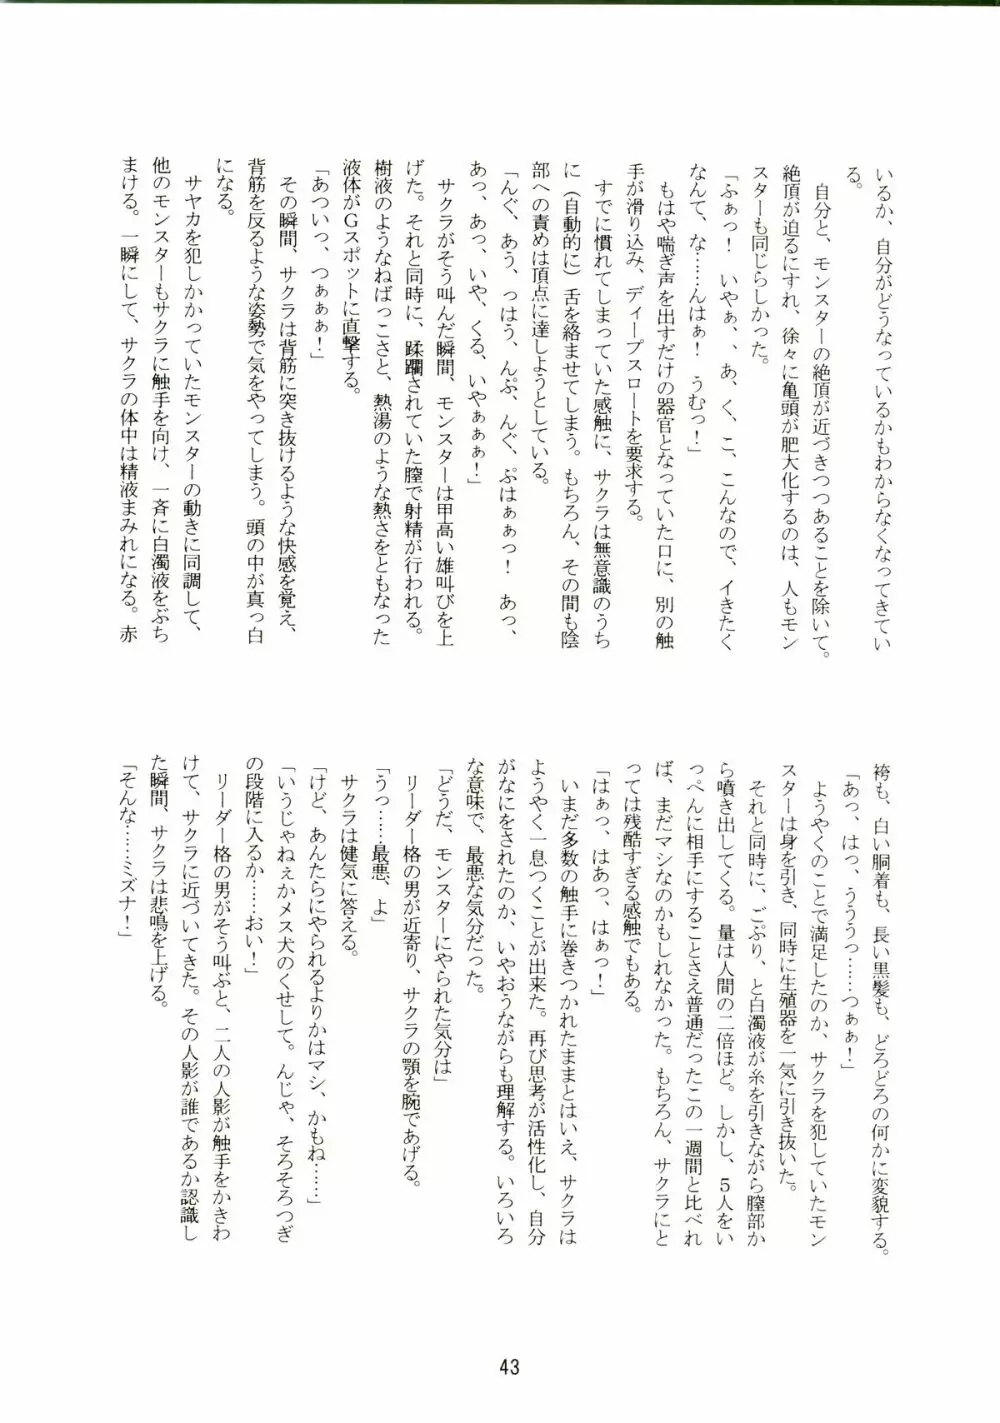 いるか、自分がどうなっているかもわからなくなってきてい
る。
自分と、モンスターの絶頂が近づきつつあることを除いて。
絶頂が迫るにすれ、徐々に亀頭が肥大化するのは、人もモン
スターも同じらしかった。
「ふぁっ！　いやぁ、、あ、く、こ、こんなので、イきたく
なんて、な……んはぁ！　うむっ！」
もはや喘ぎ声を出すだけの器官となっていた口に、別の触
手が滑り込み、ディープスロートを要求する。
すでに慣れてしまっていた感触に、サクラは無意識のうち
に（自動的に）舌を絡ませてしまう。もちろん、その間も陰
部への責めは頂点に達しようとしている。
「んぐ、あう、っはう、んぷ、んぐ、ぷはぁぁっ！　あっ、
あっ、あっ、いや、くる、いやぁぁぁ！」
サクラがそう叫んだ瞬間、モンスターは甲高い雄叫びを上
げた。それと同時に、蹂躙されていた膣で射精が行われる。
樹液のようなねばっこさと、熱湯のような熱さをともなった
液体がＧスポットに直撃する。
「あついっ、つぁぁぁ！」
その瞬間、サクラは背筋に突き抜けるような快感を覚え、
背筋を反るような姿勢で気をやってしまう。頭の中が真っ白
になる。
サヤカを犯しかかっていたモンスターの動きに同調して、
他のモンスターもサクラに触手を向け、一斉に白濁液をぶち
まける。一瞬にして、サクラの体中は精液まみれになる。赤
袴も、白い胴着も、長い黒髪も、どろどろの何かに変貌する。
「あっ、はっ、うううっ……つぁぁ！」
ようやくのことで満足したのか、サクラを犯していたモン
スターは身を引き、同時に生殖器を一気に引き抜いた。
それと同時に、ごぷり、と白濁液が糸を引きながら膣部か
ら噴き出してくる。量は人間の二倍ほど。しかし、５人をい
っぺんに相手にすることさえ普通だったこの一週間と比べれ
ば、まだマシなのかもしれなかった。もちろん、サクラにと
っては残酷すぎる感触でもある。
「はぁっ、はあっ、はぁっ！」
いまだ多数の触手に巻きつかれたままとはいえ、サクラは
ようやく一息つくことが出来た。再び思考が活性化し、自分
がなにをされたのか、いやおうながらも理解する。いろいろ
な意味で、最悪な気分だった。
「どうだ、モンスターにやられた気分は」
リーダー格の男が近寄り、サクラの顎を腕であげる。
「うっ……最悪、よ」
サクラは健気に答える。
「けど、あんたらにやられるよりかはマシ、かもね……」
「いうじゃねぇかメス犬のくせして。んじゃ、そろそろつぎ
の段階に入るか……おい！」
リーダー格の男がそう叫ぶと、二人の人影が触手をかきわ
けて、サクラに近づいてきた。その人影が誰であるか認識し
た瞬間、サクラは悲鳴を上げる。
「そんな……ミズナ！」
43